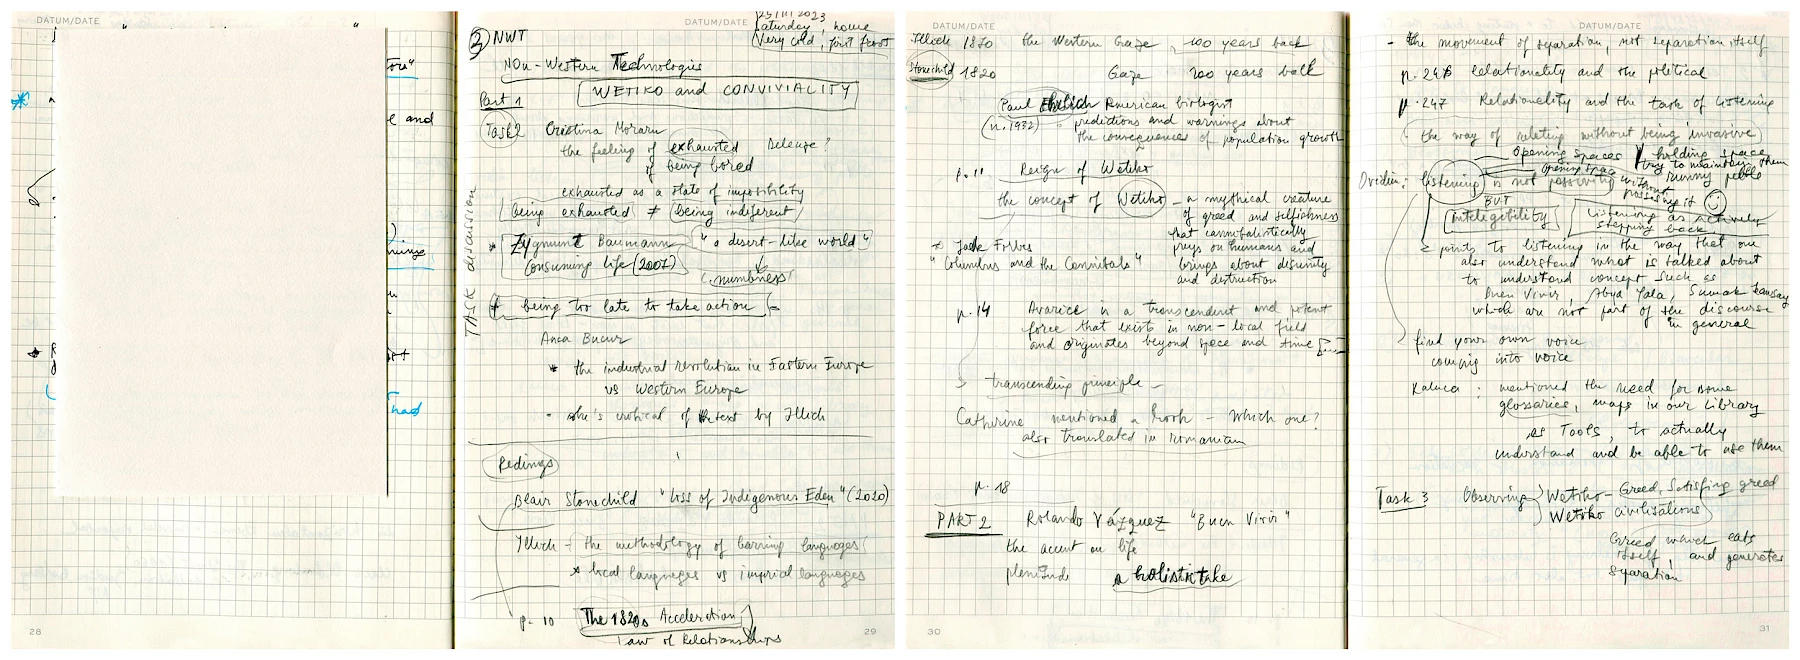 DATUM/DATE
and
had
28
DATUM/DATE
25/III 2023
Saturday, home
Very cold, first frost
3 NWT
Non-Western Technologies
WETIKO and CONVIVIALITY
Part 1
TASK discussion
Task 2 Cristina Moraru
the feeling of exhausted Deleuze?
of being bored
exhausted as a state of impossibility
being exhausted ≠ being indiferent
* Zygmunt Baumann "a desert-like world"
Consuming life (2007)
numbness
being too late to take action
Anca Bucur
* the industrial revolution in Eastern Europe
vs Western Europe
• she's critical of the text by Illich
Redings
Blair Stonechild "Loss of Indigenous Eden" (2020)
Illich - the methodology of learning languages
* local languages vs imperial languages
p. 10 The 1820s Acceleration
Law of Relationships
29
DATUM/DATE
Illich 1870 the Western Gaze, 100 years back
Stonechild 1820 Gaze 200 years back
Paul Ehrlich American biologist
(n. 1932) • predictions and warnings about
the consequences of population growth
p. 11 Reign of Wetiko
the concept of Wetiko - a mythical creature
of greed and selfishness
that cannibalistically
preys on humans and
brings about disunity
and destruction
* Jack Forbes
"Columbus and the Cannibals"
p. 14 Avarice is a transcendent and potent
force that exists in non-local field
and originates beyond space and time
transcending principle -
Catherine mentioned a book - which one?
also translated in romanian
p. 18
PART 2 Rolando Vázquez "Buen Vivir"
the accent on life
plenitude a holistic take
30
DATUM/DATE
- the movement of separation, not separation itself
p. 246 Relationality and the political
p. 247 Relationality and the task of listening
the way of relating without being invasive
opening spaces holding space
try to maintain them
Ovidiu: listening is not passivity without
possessing it
BUT
intelegibility Listening as actively
stepping back
points to listening in the way that one
also understand what is talked about
to understand concept such as
Buen Vivir, Abya Yala, Sumak Kawsay
which are not part of the discourse
in general
find your own voice
coming into voice
Raluca: mentioned the need for some
glossaries, maps in our Library
as Tools, to actually
understand and be able to use them
Task 3 Observing Wetiko - Greed, Satisfing greed
Wetiko civilisations
Greed which eats
itself, and generates
separation
31